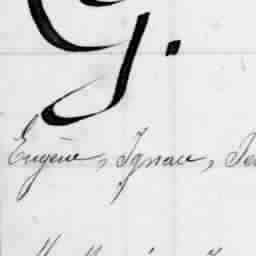 G.
Eugène, Ignace,